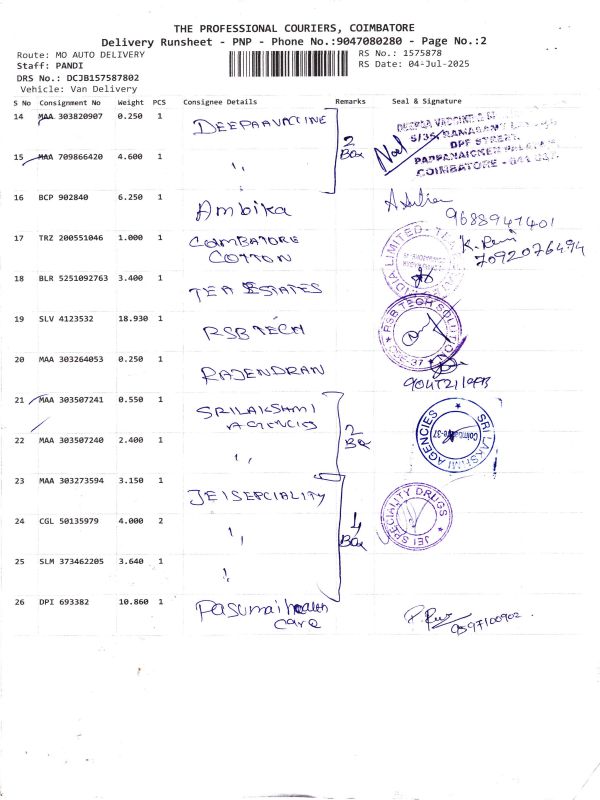 THE PROFESSIONAL COURIERS, COIMBATORE
Delivery Runsheet - PNP - Phone No.:9047080280 - Page No.:2
Route: MO AUTO DELIVERY RS No.: 1575878
Staff: PANDI RS Date: 04-Jul-2025
DRS No.: DCJB157587802
Vehicle: Van Delivery
S No Consignment No Weight PCS Consignee Details Remarks Seal & Signature
14 MAA 303820907 0.250 1 DEEPAAVACCINE
2 Box
Noel
DEEPAA VACCINE
5/35, RAMASAMY
DPF STREET
PAPPANAICKEN PALAYAM
COIMBATORE - 641 037
15 MAA 709866420 4.600 1 ,,
16 BCP 902840 6.250 1 Ambika
9688947401
17 TRZ 200551046 1.000 1 COIMBATORE COTTON
K. Rani
7092076494
INDIA LIMITED
18 BLR 5251092763 3.400 1 TEA ESTATES
19 SLV 4123532 18.930 1 RSB TECH
RSB TECH SOLUTION
20 MAA 303264053 0.250 1 RAJENDRAN
21 MAA 303507241 0.550 1 SRILAKSHMI AGENCIS
2 Box
SRI LAKSHMI AGENCIES
Coimbatore-37
22 MAA 303507240 2.400 1 ,,
23 MAA 303273594 3.150 1 JEISEPCIALITY
4 Box
JEI SPECIALITY DRUGS
24 CGL 50135979 4.000 2 ,,
25 SLM 373462205 3.640 1 ,,
26 DPI 693382 10.860 1 Pasumai health care
9597100902